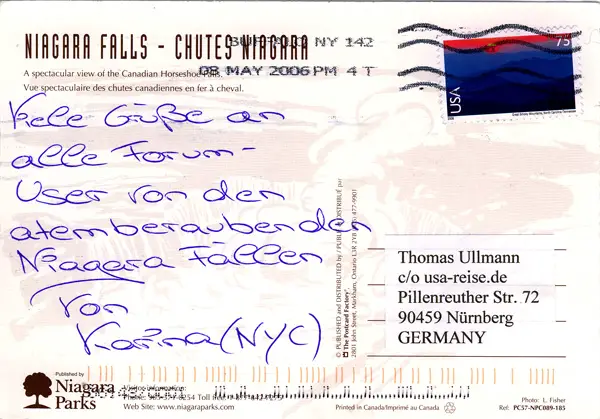 NIAGARA FALLS - CHUTES NIAGARA
BUFFALO NY 142
08 MAY 2006 PM 4 T
A spectacular view of the Canadian Horseshoe Falls.
Vue spectaculaire des chutes canadiennes en fer à cheval.
75
USA
Viele Grüße an
alle Forum-
User von den
atemberaubenden
Niagara Fällen
von
Karina (NYC)
© PUBLISHED and DISTRIBUTED by / PUBLIÉ et DISTRIBUÉ par
The Postcard Factory
2801 John Street, Markham, Ontario L3R 2Y8 477-9901
Thomas Ullmann
c/o usa-reise.de
Pillenreuther Str. 72
90459 Nürnberg
GERMANY
Published by
Niagara
Parks
Visitor Information:
Web Site: www.niagaraparks.com
Printed in Canada/Imprimé au Canada
Photo: L. Fisher
Ref: PC57-NPC089-185